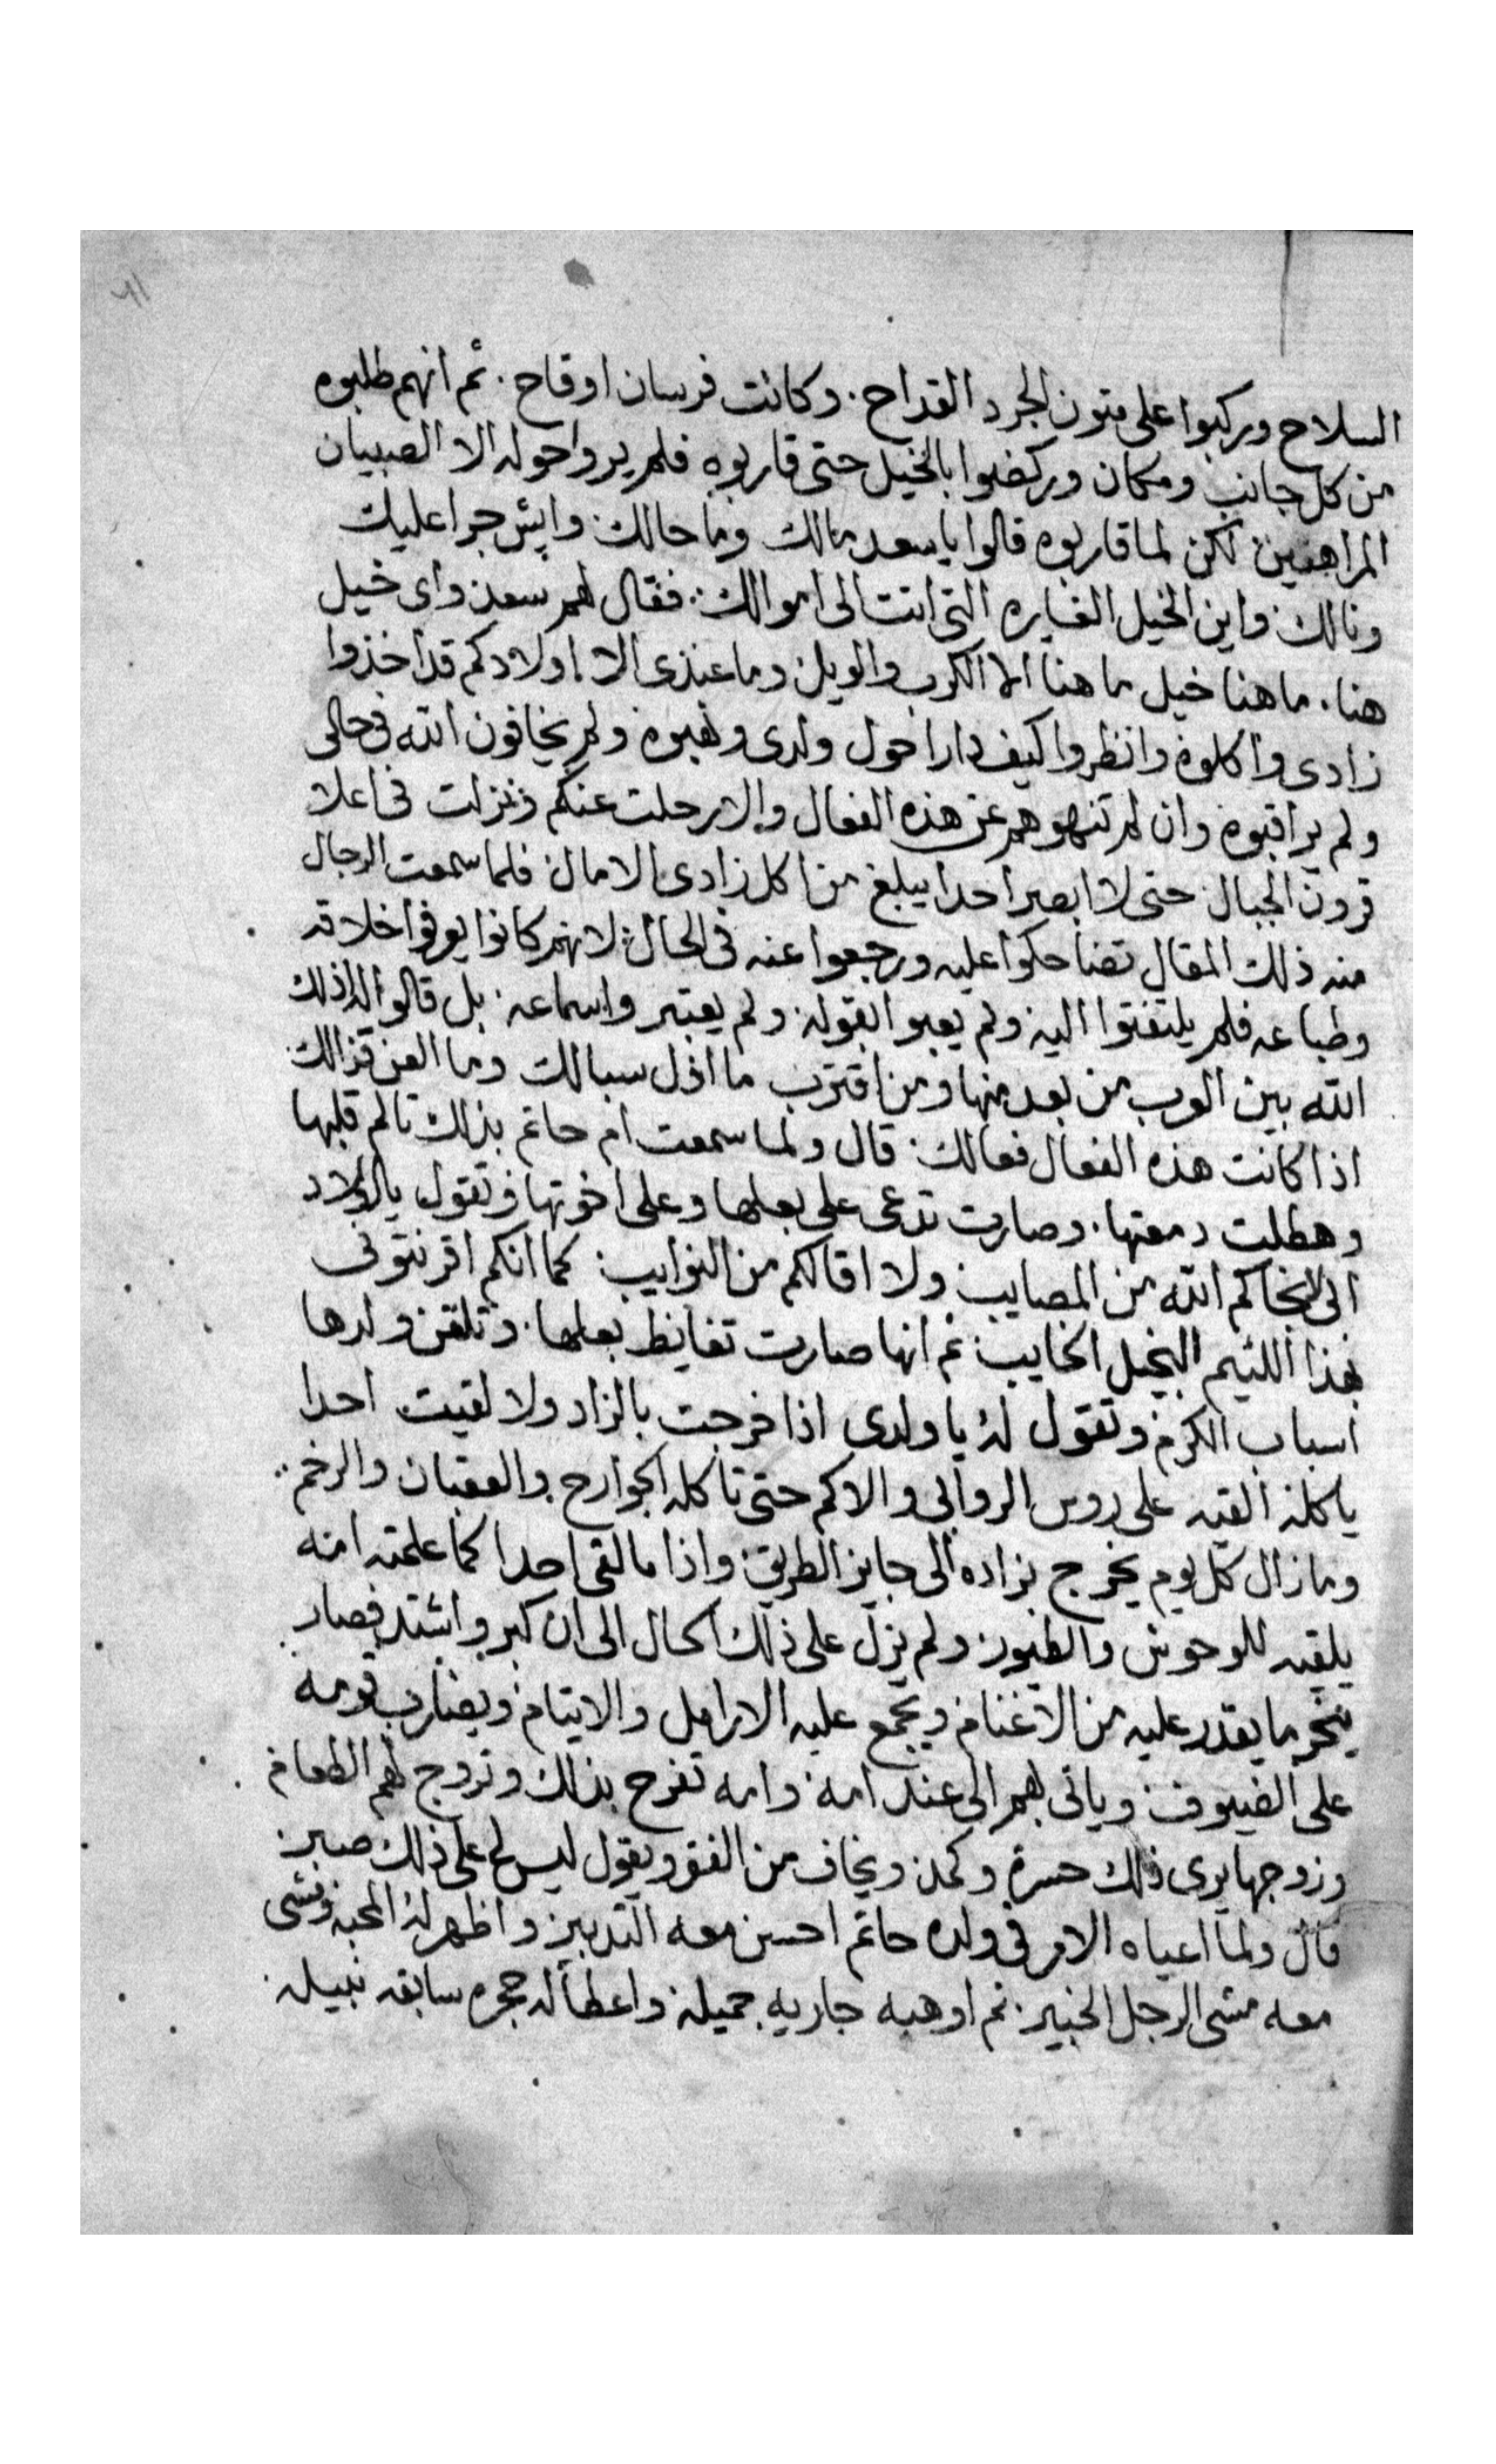 السلاح وركبوا على متون الجرد القداح. وكانت فرسان اوقاح. ثم انهم طلبوه
من كل جانب ومكان وركضوا بالخيل حتى قاربوه فلم يروا حوله الا الصبيان
المراهقين لكن لما قاربوه قالوا يا سعد مالك وما حالك. وايش جرا عليك
ونالك واين الخيل الغايره التى اتت الى اموالك. فقال لهم سعد واى خيل
هنا. ما هنا خيل ما هنا الا الكرب والويل وما عندى الا اولادكم قد اخذوا
زادى واكلوه وانظروا كيف دارا حول ولدى ونهبوه ولم يخافون الله فى حالى
ولم يراقبوه وان لم تنهوهم عن هذه الفعال والا رحلت عنكم ونزلت فى اعلا
قرون الجبال حتى لا ابصر احدا يبلغ من اكل زادى الامال فلما سمعت الرجال
منه ذلك المقال تضاحكوا عليه ورجعوا عنه فى الحال لانهم كانوا يعرفوا اخلاقه
وطباعه فلم يلتفتوا اليه ولم يعبوا بقوله ولم يعتبروا سماعه. بل قالوا له اذلك
الله بين العرب من بعد منها ومن اقترب ما اذل سبالك وما العن قذالك
اذا كانت هذه الفعال فعالك. قال ولما سمعت ام حاتم بذلك تالم قلبها
وهطلت دمعتها. وصارت تدعى على بعلها وعلى اخوتها وتقول يا اولاد
ابى لا نجاكم الله من المصايب ولا اقالكم من النوايب كما انكم اقرنتونى
بهذا اللئيم البخيل الخايب ثم انها صارت تغايظ بعلها. وتلقن ولدها
اسباب الكرم وتقول له يا ولدى اذا خرجت بالزاد ولا لقيت احدا
ياكله القيه على روس الروابى والاكم حتى تاكله الجوارح والعقبان والرخم
وما زال كل يوم يخرج بزاده الى جايز الطريق واذا ما لقى احدا كما علمته امه
يلقيه للوحوش والطيور ولم يزل على ذلك الحال الى ان كبر واشتد فصار
ينحر ما يقدر عليه من الاغنام ويجمع عليه الارامل والايتام ويضارب قومه
على الضيوف وياتى بهم الى عند امه وامه تفرح بذلك وتروج لهم الطعام
وزوجها يرى ذلك حسرة وكمد ويخاف من الفقر ويقول ليس لى على ذلك صبر
قال ولما اعياه الامر فى ولده حاتم احسن معه التدبير واظهر له المحبه ومشى
معه مشى الرجل الخبير. ثم اوهبه جاريه جميله واعطا له حجره سابقه نبيله